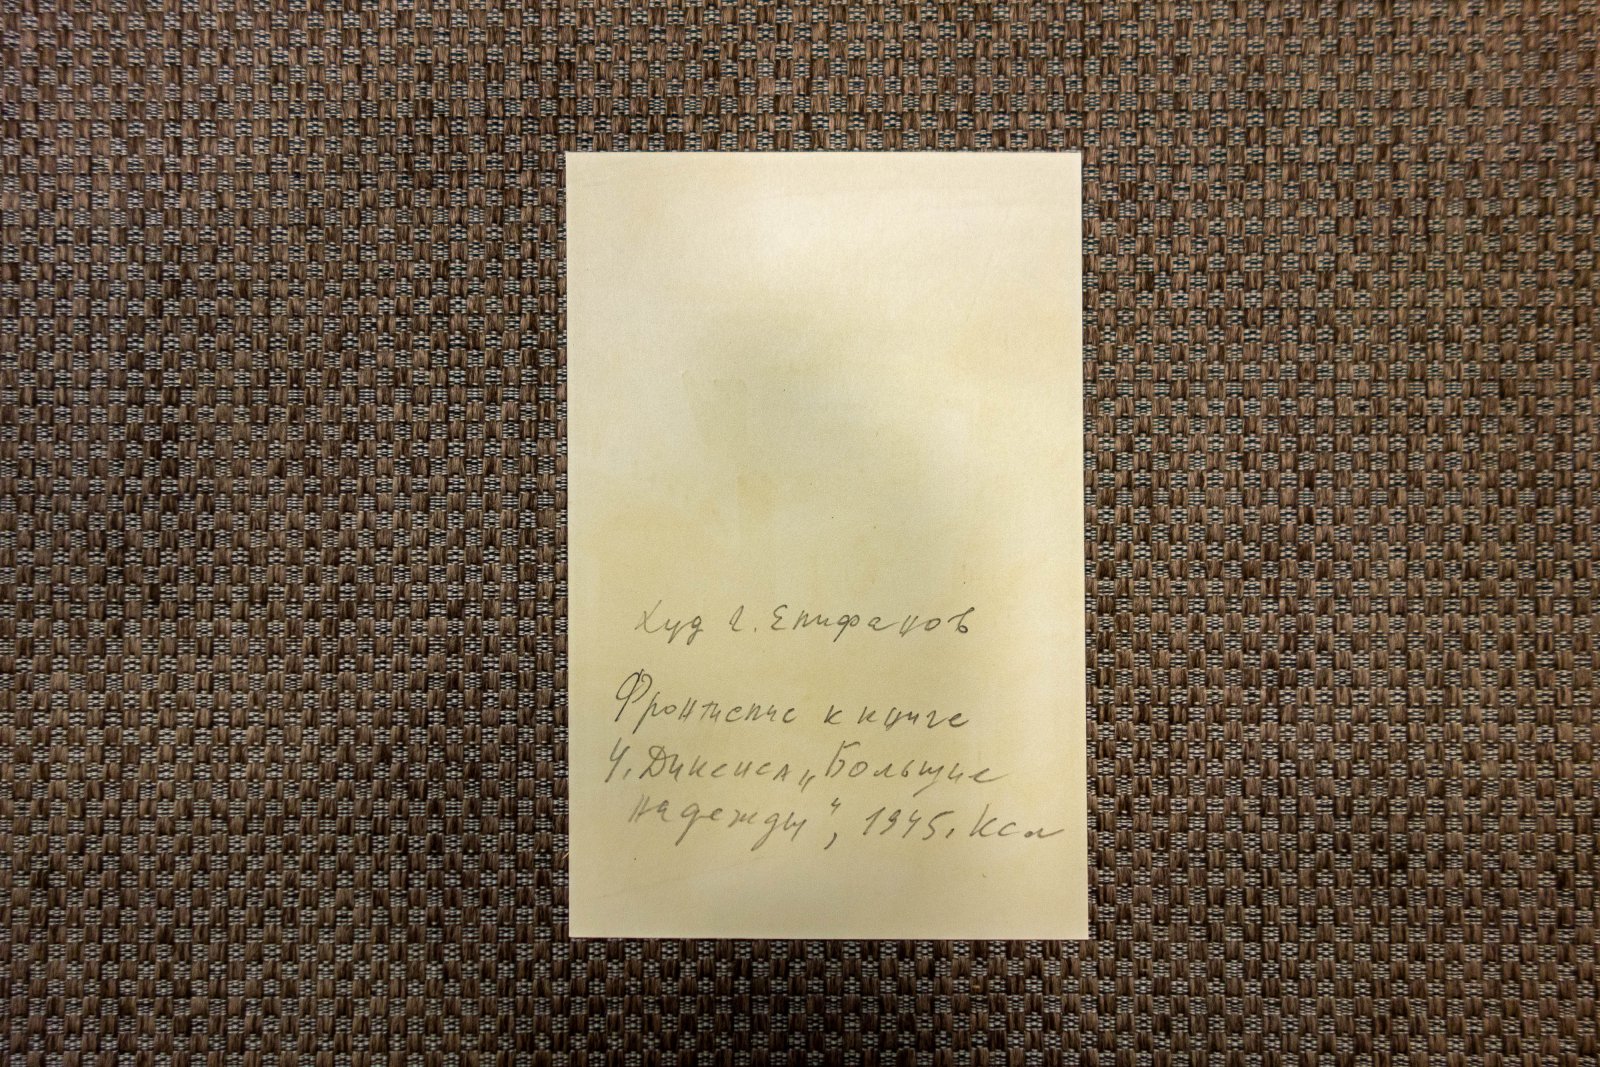 Худ Г. Епифанов
Фронтиспис к книге
Ч. Диккенса „Большие
надежды“, 1945. Ксл